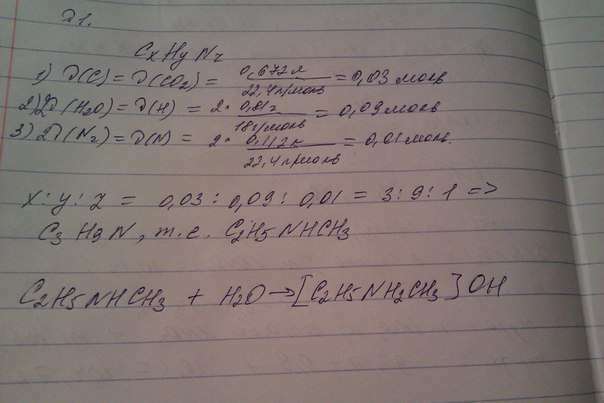 21.
CxHyNz
1) ν(C) = ν(CO2) = 0,672л / 22,4л/моль = 0,03 моль
2) 2ν(H2O) = ν(H) = 2 · 0,81г / 18г/моль = 0,09 моль
3) 2ν(N2) = ν(N) = 2 · 0,112л / 22,4л/моль = 0,01 моль.
x : y : z = 0,03 : 0,09 : 0,01 = 3 : 9 : 1 =>
C3H9N, т.е. C2H5NHCH3
C2H5NHCH3 + H2O → [C2H5NH2CH3]OH